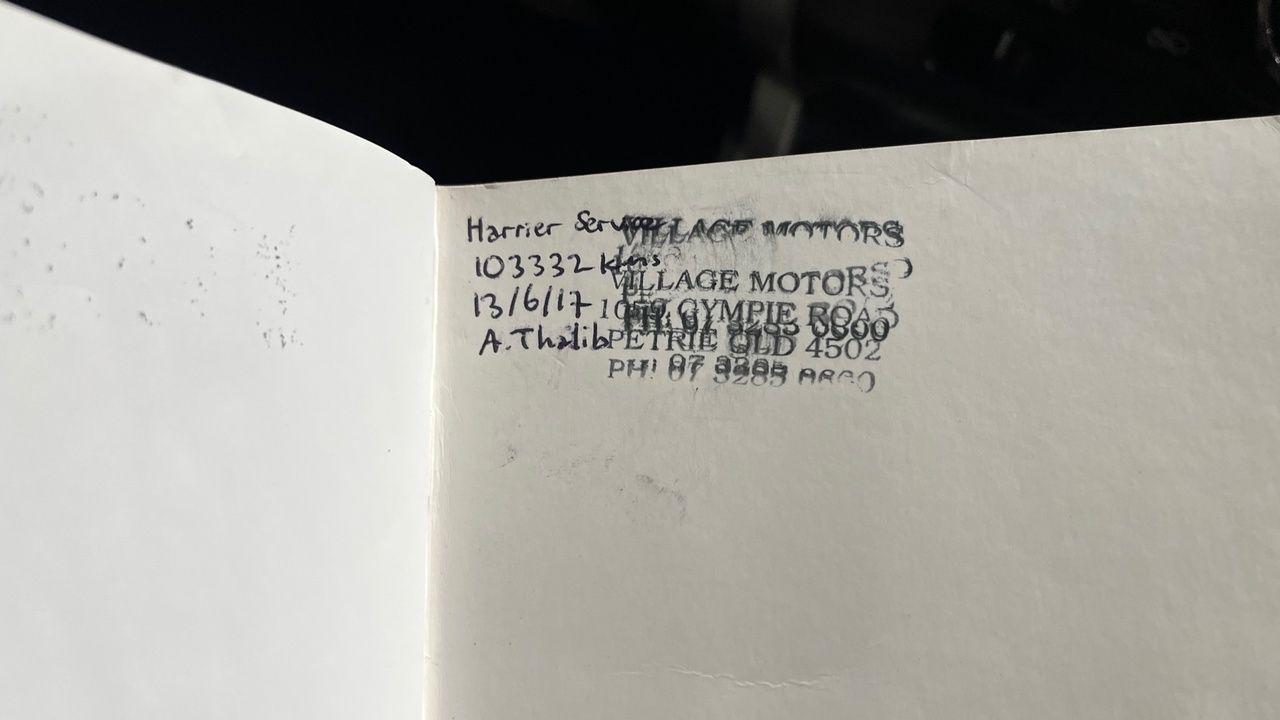 Harrier Service
103332 kms
13/6/17
A. Thalib
VILLAGE MOTORS
VILLAGE MOTORS
GYMPIE ROAD
PH: 07 3285 0800
PETRIE QLD 4502
PH: 07 3285